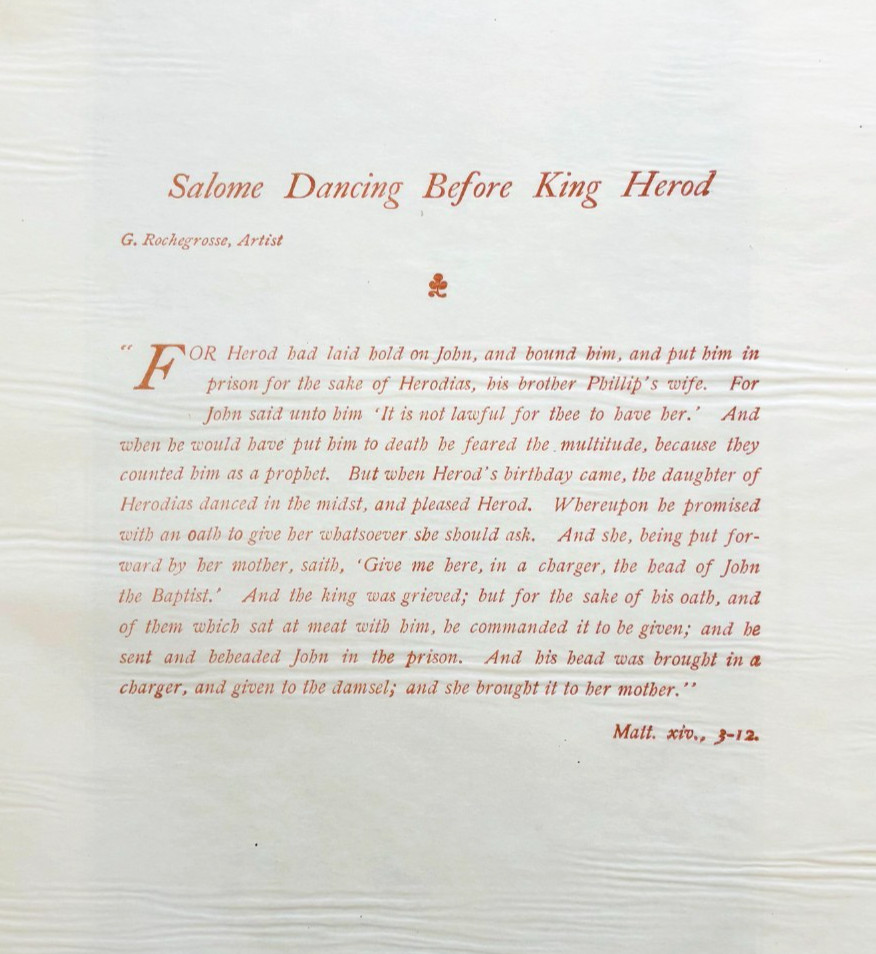 Salome Dancing Before King Herod
G. Rochegrosse, Artist
“FOR Herod had laid hold on John, and bound him, and put him in
prison for the sake of Herodias, his brother Phillip's wife. For
John said unto him ‘It is not lawful for thee to have her.’ And
when he would have put him to death he feared the multitude, because they
counted him as a prophet. But when Herod's birthday came, the daughter of
Herodias danced in the midst, and pleased Herod. Whereupon he promised
with an oath to give her whatsoever she should ask. And she, being put for-
ward by her mother, saith, ‘Give me here, in a charger, the head of John
the Baptist.’ And the king was grieved; but for the sake of his oath, and
of them which sat at meat with him, he commanded it to be given; and he
sent and beheaded John in the prison. And his head was brought in a
charger, and given to the damsel; and she brought it to her mother.”
Matt. xiv., 3-12.